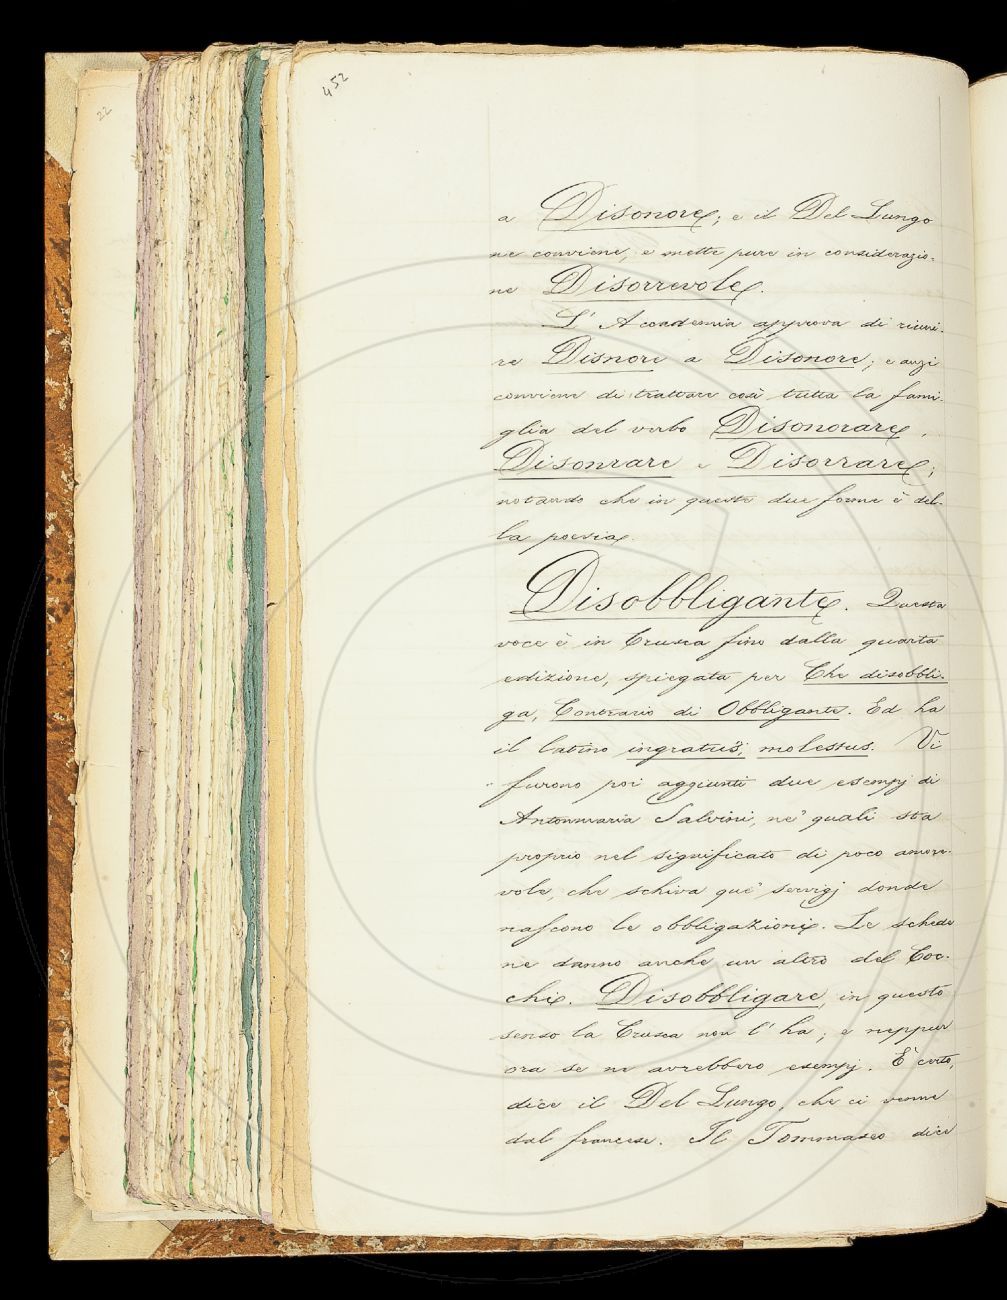 452
22
a Disonore; e il Del Lungo
ne conviene, e mette pure in considerazio-
ne Disorrevole.
L' Accademia approva di riuni-
re Disnore a Disonore; e anzi
conviene di trattare così tutta la fami-
glia del verbo Disonorare,
Disonrare e Disorrare;
notando che in queste due forme è del-
la poesia.
Disobbligante. Questa
voce è in Crusca fino dalla quarta
edizione, spiegata per Che disobbli-
ga, Contrario di Obbligante. Ed ha
il latino ingratus, molestus. Vi
furono poi aggiunti due esempj di
Antonmaria Salvini, ne' quali sta
proprio nel significato di poco amore-
vole, che schiva que' servigj donde
nascono le obbligazioni. Le schede
ne danno anche un altro del Coc-
chi. Disobbligare, in questo
senso la Crusca non l' ha; e neppur
ora se ne avrebbero esempj. È certo,
dice il Del Lungo, che ci venne
dal francese. Il Tommaseo dice